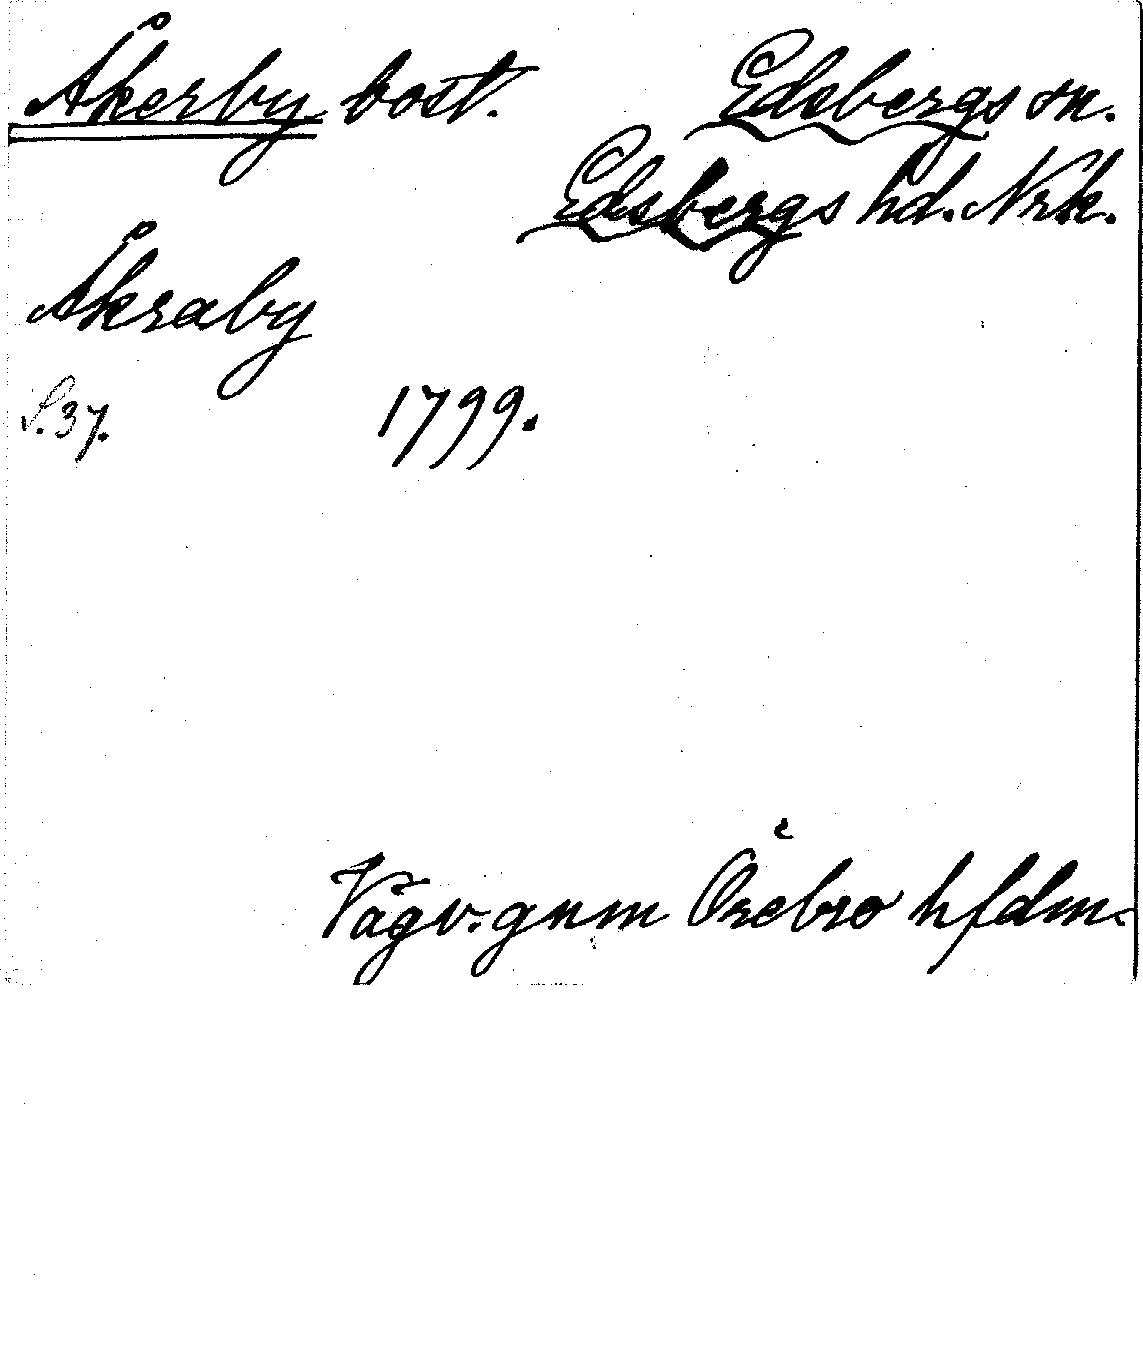 Åkerby bost. Edsbergs sn.
Edsbergs hd. Nrk.
Åkraby
S. 37. 1799.
Vägv. gnm Örebro hfdm